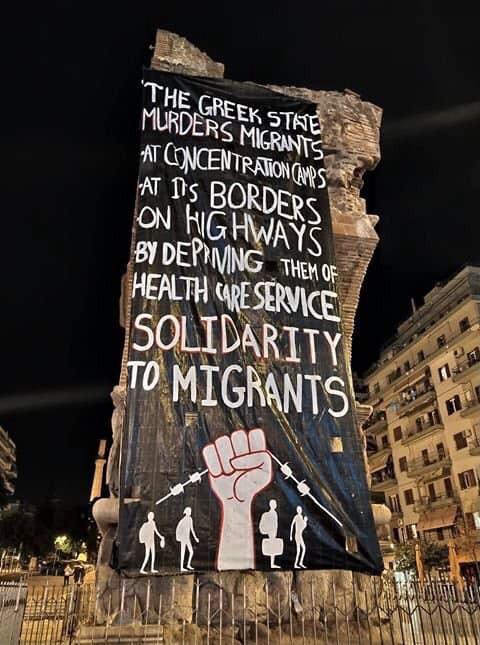 THE GREEK STATE
MURDERS MIGRANTS
-AT CONCENTRATION CAMPS
-AT ITS BORDERS
-ON HIGHWAYS
-BY DEPRIVING THEM OF
HEALTH CARE SERVICE
SOLIDARITY
TO MIGRANTS